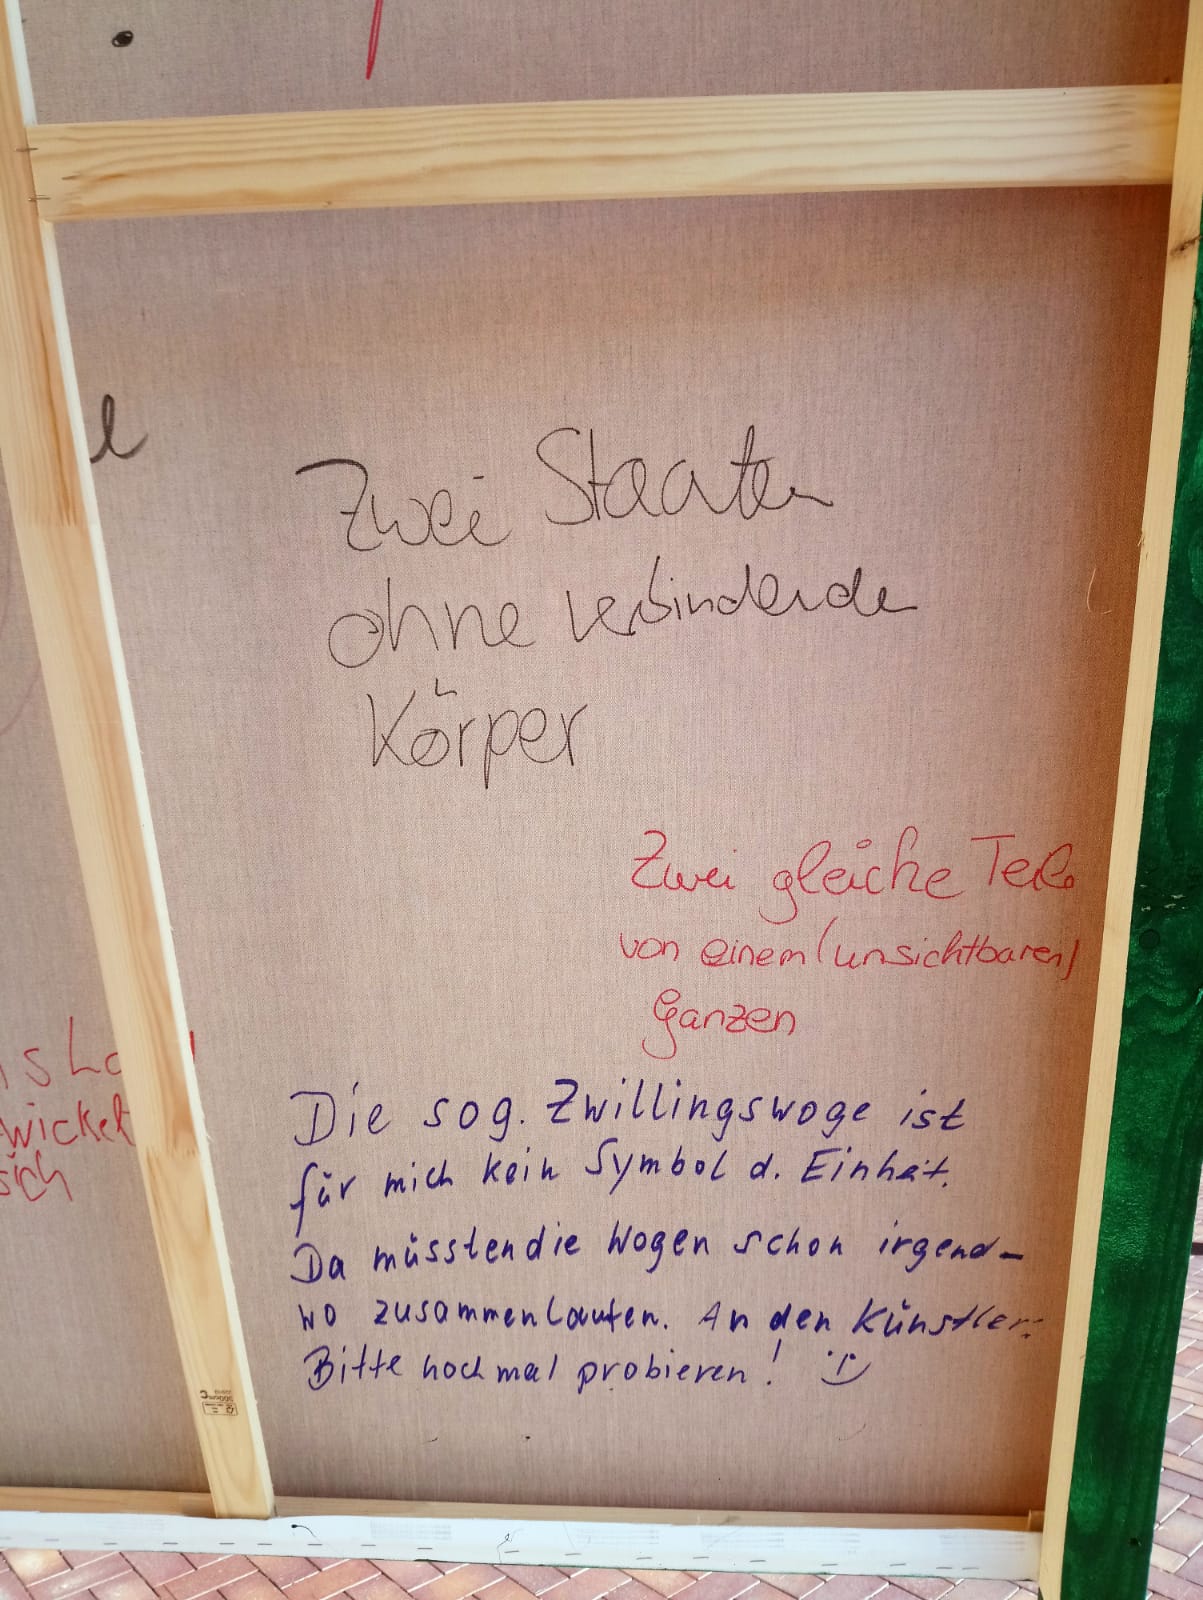 Zwei Staaten
ohne verbindende
Körper
Zwei gleiche Teile
von einem (unsichtbaren)
Ganzen
Die sog. Zwillingswoge ist
für mich kein Symbol d. Einheit.
Da müssten die Wogen schon irgend-
wo zusammenlaufen. An den Künstler:
Bitte noch mal probieren! :)
wickelt
sich